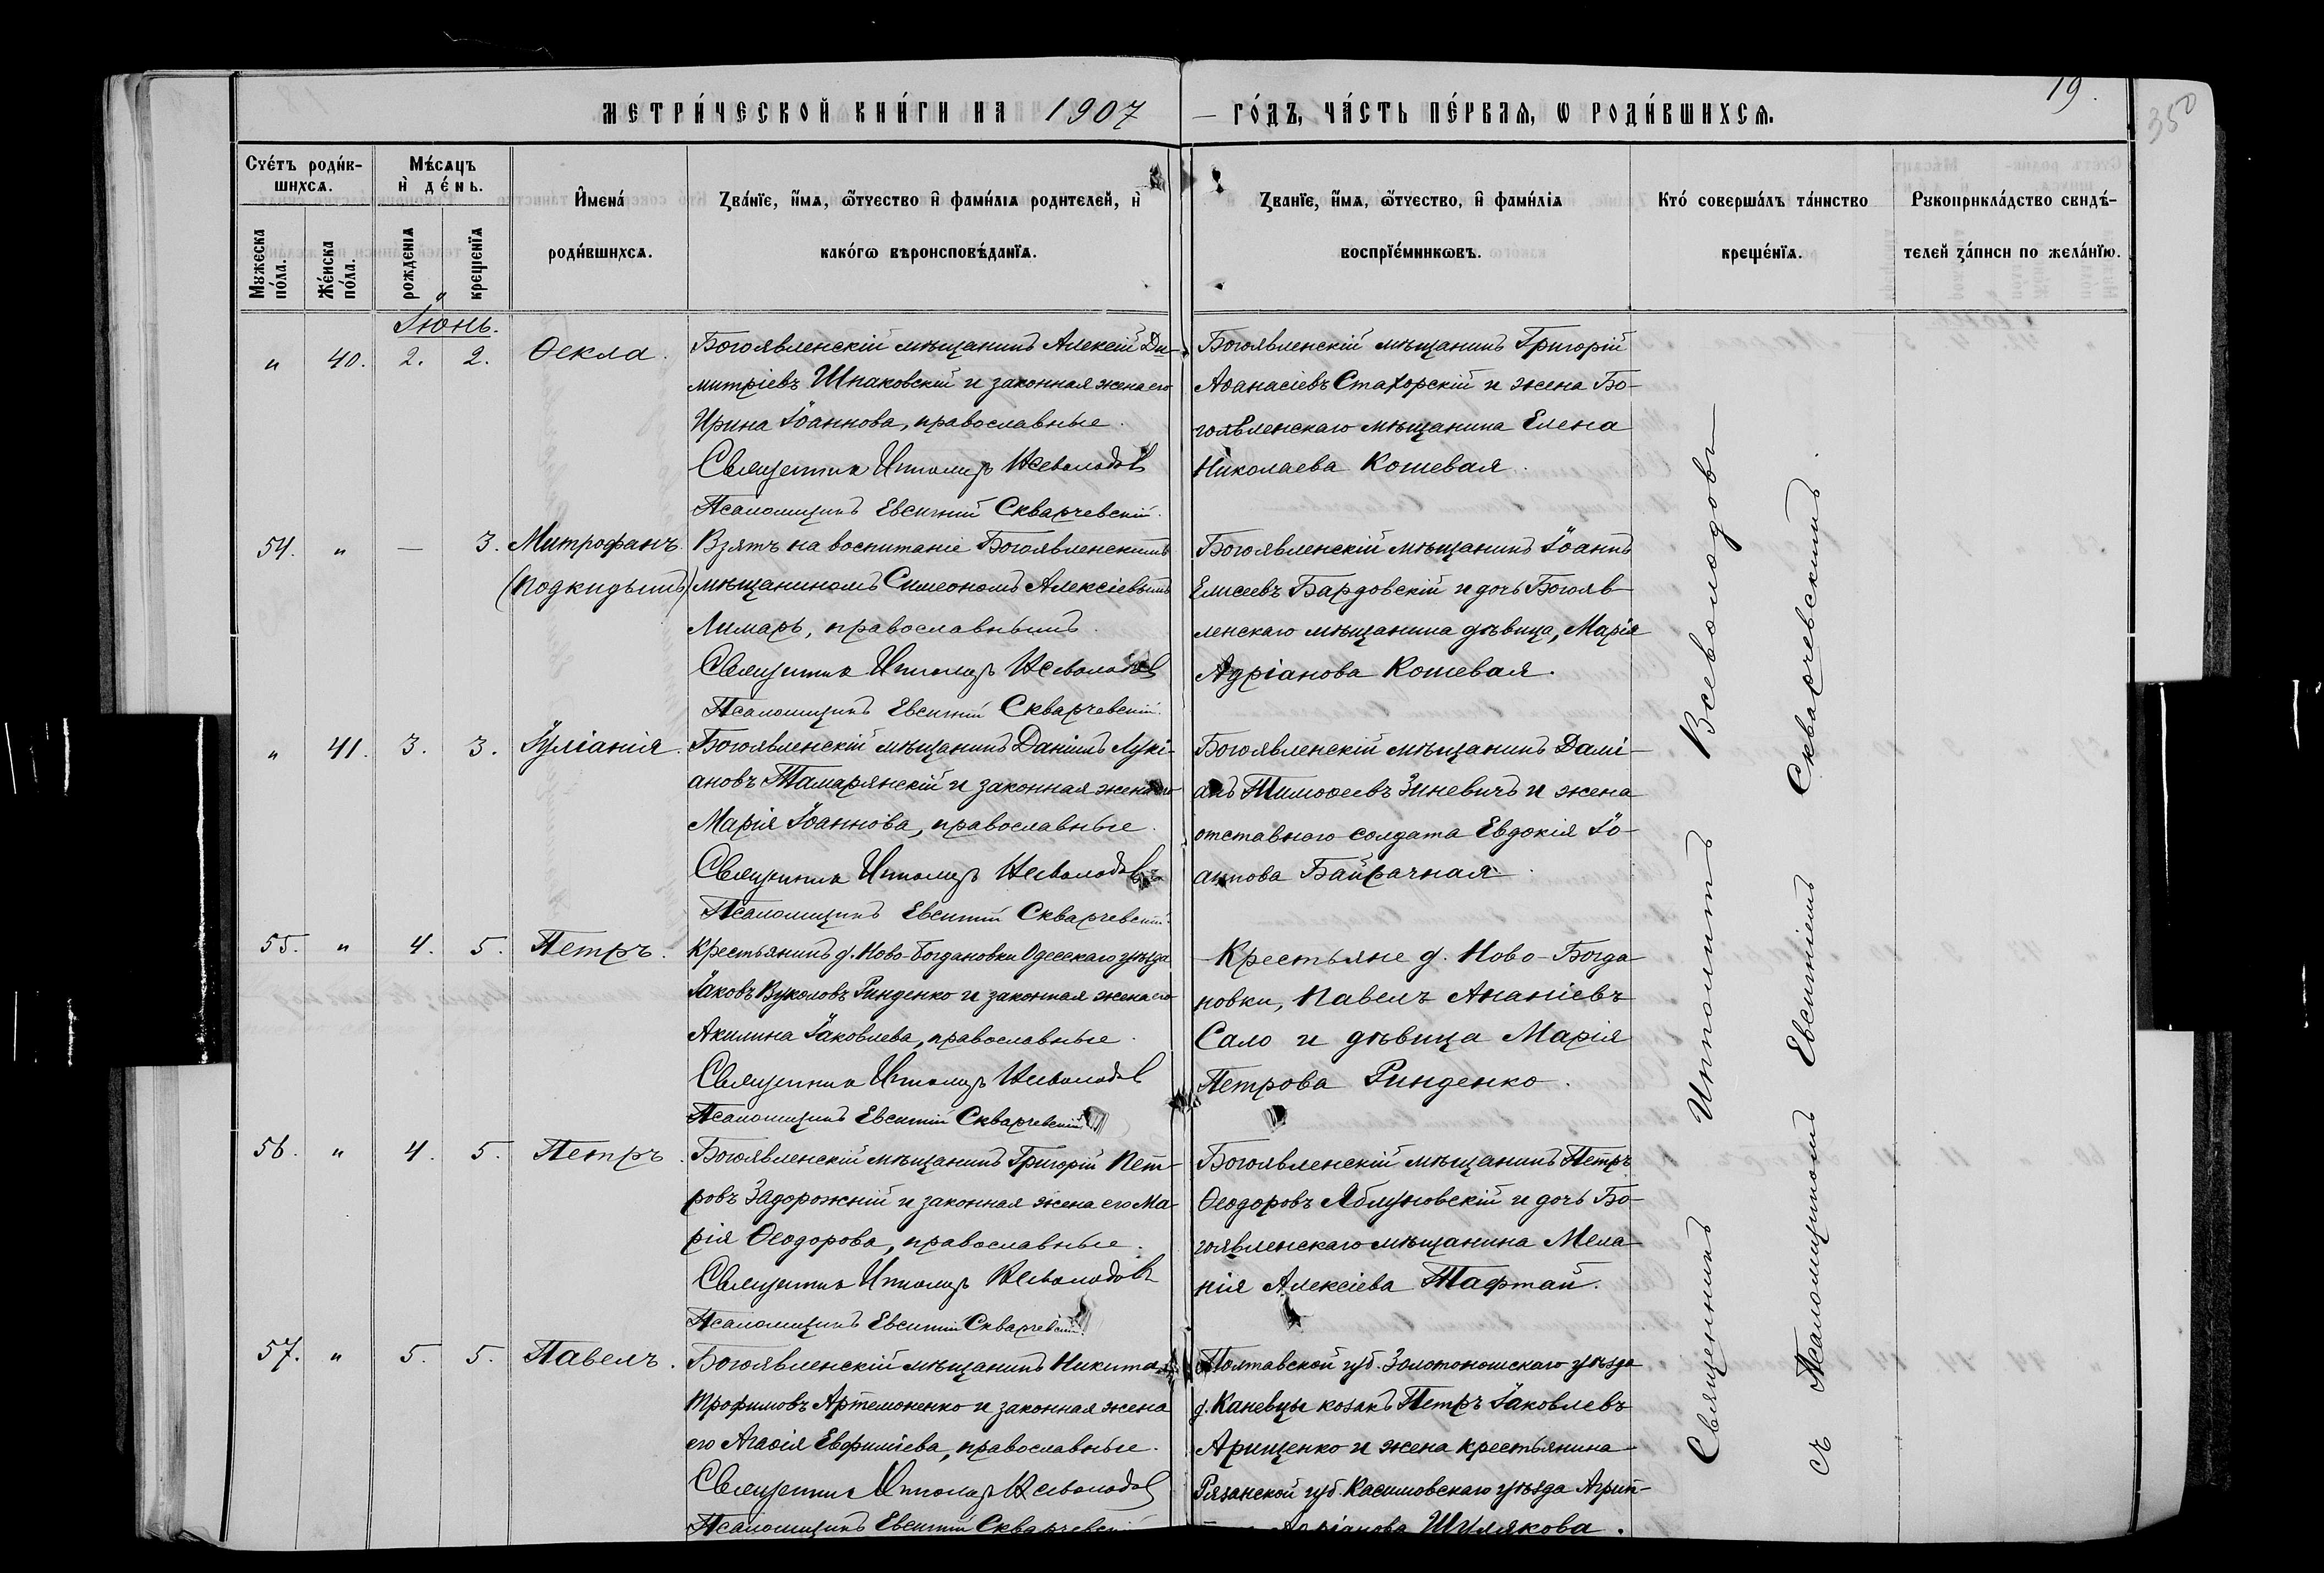 МЕТРИ́ЧЕСКОЙ КНИ́ГИ НА 1907 — ГО́ДЪ, ЧА́СТЬ ПЕ́РВАѦ, Ѡ РОДИ́ВШИХСѦ.
19.
350
Сче́тъ роди́в-
шихсѧ.
Мѣ́сѧцъ
и҆ де́нь.
Мꙋжеска по́ла.
Же́нска по́ла.
рожде́нїѧ
креще́нїѧ
И҆мена́
роди́вшихсѧ.
Зва́нїе, и҆́мѧ, ѻ҆́тчество и҆ фами́лїѧ роди́телей, и҆
како́гѡ вѣроисповѣ́данїѧ.
Зва́нїе, и҆́мѧ, ѻ҆́тчество, и҆ фами́лїѧ
воспрїе́мникѡвъ.
Кто́ соверша́лъ та́инство
креще́нїѧ.
Рꙋкоприкла́дство свидѣ́-
телей за́писи по жела́нїю.
Іюнь.
" 40. 2. 2. Ѳекла.
Богоявленскій мѣщанинъ Алексій Ди-
митріевъ Шпаковскій и законная жена его
Ирина Іоаннова, православные.
Священникъ Ипполитъ Всеволодовъ
Псаломщикъ Евсигній Скварчевскій.
Богоявленскій мѣщанинъ Григорій
Аѳанасіевъ Стахорскій и жена Бо-
гоявленскаго мѣщанина Елена
Николаева Кошевая.
54. " — 3. Митрофанъ.
(подкидышъ)
Взятъ на воспитаніе Богоявленскимъ
мѣщаниномъ Симеономъ Алексіевымъ
Лимарь, православнымъ.
Священникъ Ипполитъ Всеволодовъ
Псаломщикъ Евсигній Скварчевскій.
Богоявленскій мѣщанинъ Іоаннъ
Елисеевъ Бардовскій и дочь Богояв-
ленскаго мѣщанина дѣвица, Марія
Адріанова Кошевая.
" 41. 3. 3. Іуліанія.
Богоявленскій мѣщанинъ Даніилъ Лукі-
ановъ Тамарянскій и законная жена его
Марія Іоаннова, православные.
Священникъ Ипполитъ Всеволодовъ
Псаломщикъ Евсигній Скварчевскій.
Богоявленскій мѣщанинъ Дамі-
анъ Тимоѳеевъ Зиневичъ и жена
отставного солдата Евдокія Іо-
аннова Байрачная.
55. " 4. 5. Петръ.
Крестьянинъ д. Ново-Богдановки Одесскаго уѣзда
Іаковъ Вуколовъ Ринденко и законная жена его
Акилина Іаковлева, православные.
Священникъ Ипполитъ Всеволодовъ
Псаломщикъ Евсигній Скварчевскій
Крестьяне д. Ново-Богда
новки, Павелъ Ананіевъ
Сало и дѣвица Марія
Петрова Ринденко.
56. " 4. 5. Петръ.
Богоявленскій мѣщанинъ Григорій Пет-
ровъ Задорожній и законная жена его Ма-
рія Ѳеодорова, православные.
Священникъ Ипполитъ Всеволодовъ
Псаломщикъ Евсигній Скварчевскій
Богоявленскій мѣщанинъ Петръ
Ѳеодоровъ Яблуновскій и дочь Бо-
гоявленскаго мѣщанина Мела
нія Алексіева Тафтай.
57. " 5. 5. Павелъ.
Богоявленскій мѣщанинъ Никита
Трофимовъ Артемоненко и законная жена
его Агаѳія Евфиміева, православные.
Священникъ Ипполитъ Всеволодовъ
Псаломщикъ Евсигній Скварчевскій
Полтавской губ. Золотоношскаго уѣзда
д. Каневцы козакъ Петръ Іаковлевъ
Арищенко и жена крестьянина
Рязанской губ. Касимовскаго уѣзда Агрип-
Адріанова Шулякова.
Священникъ Ипполитъ Всеволодовъ
съ Псаломщикомъ Евсигніемъ Скварчевскимъ.